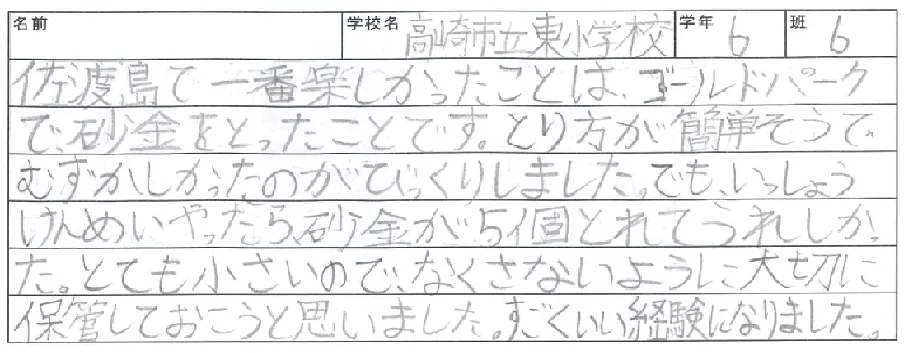 名前 学校名 高崎市立東小学校 学年 6 班 6
佐渡島で一番楽しかったことは、ゴールドパーク
で、砂金をとったことです。とり方が簡単そうで
むずかしかったのがびっくりしました。でも、いっしょう
けんめいやったら、砂金が5個とれてうれしかっ
た。とても小さいので、なくさないように大切に
保管しておこうと思いました。すごくいい経験になりました。